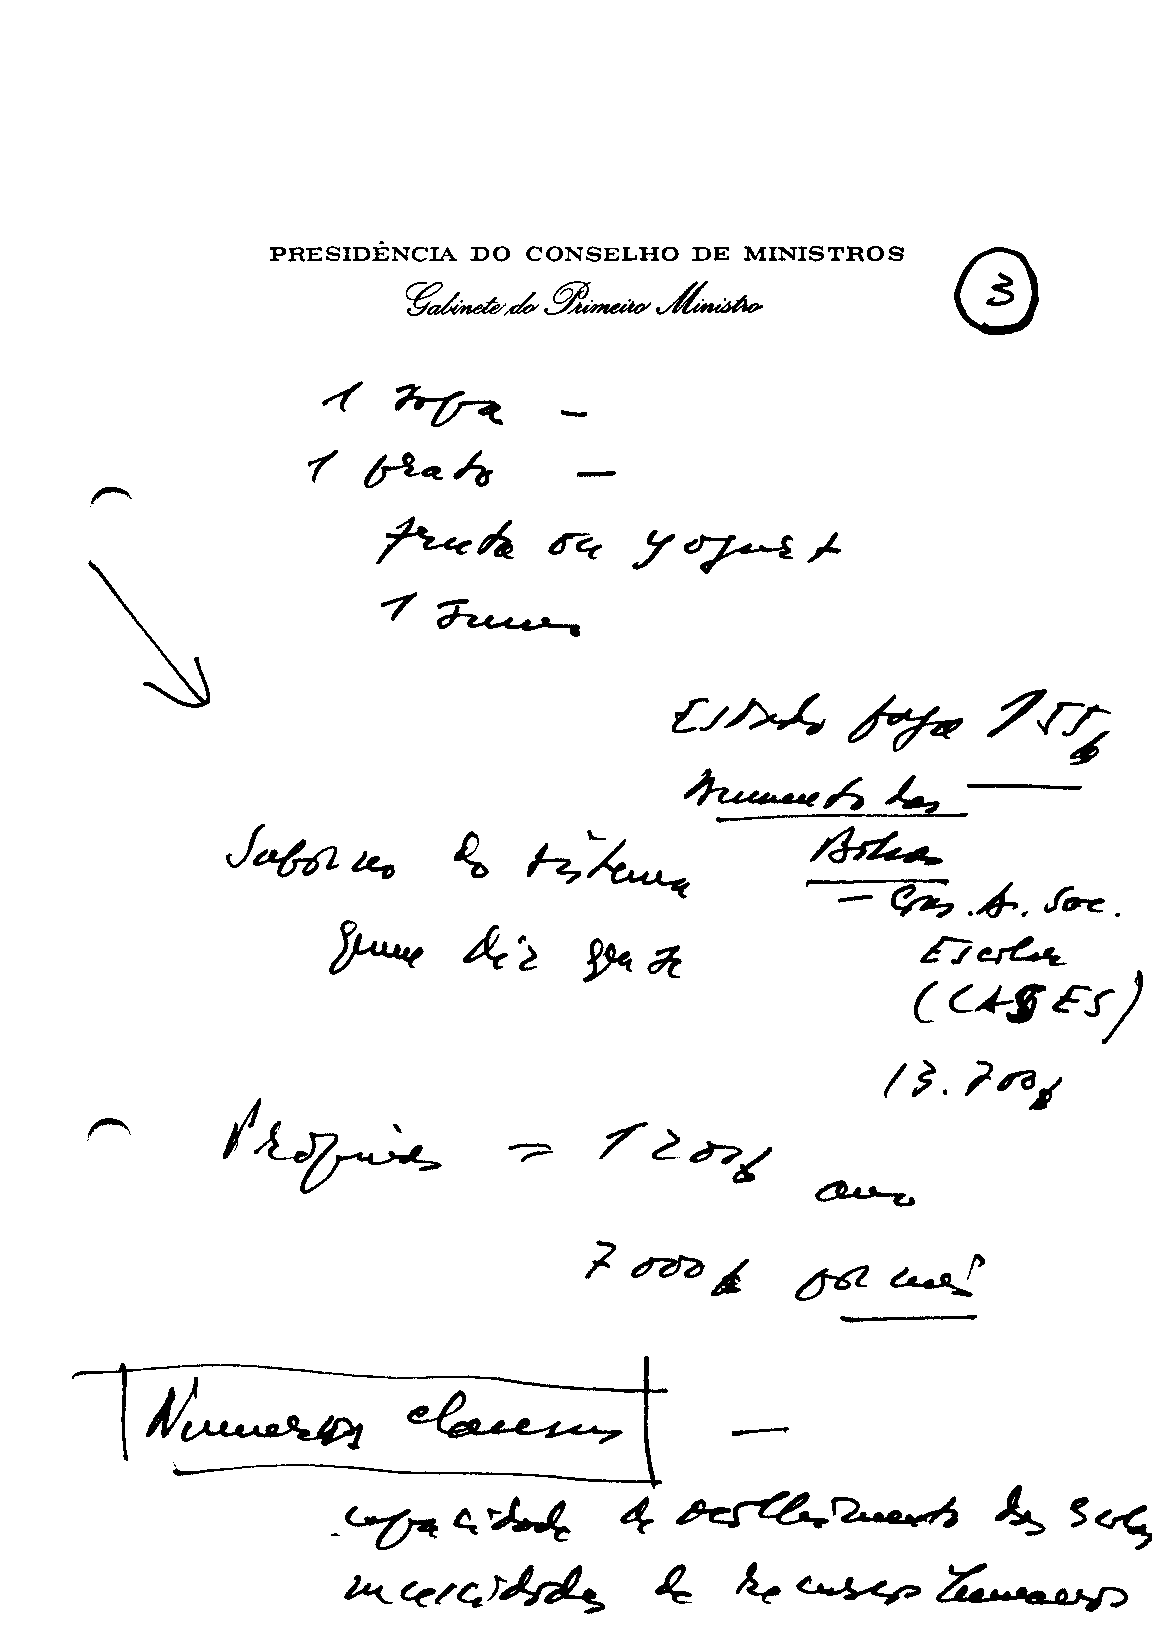 PRESIDÊNCIA DO CONSELHO DE MINISTROS
Gabinete do Primeiro Ministro
3
1 sopa –
1 prato –
fruta ou yogurt
1 sumo
Estado paga 155$
Aumento das
Bolsas
– Cons. A. Soc.
Escolar
(CASES)
13.700$
Suborno do sistema
quase diz
Própinas = 1200$ ano
7000$ por mês
Numerus clausus –
capacidade de acolhimento das Escolas
necessidades de recursos humanos